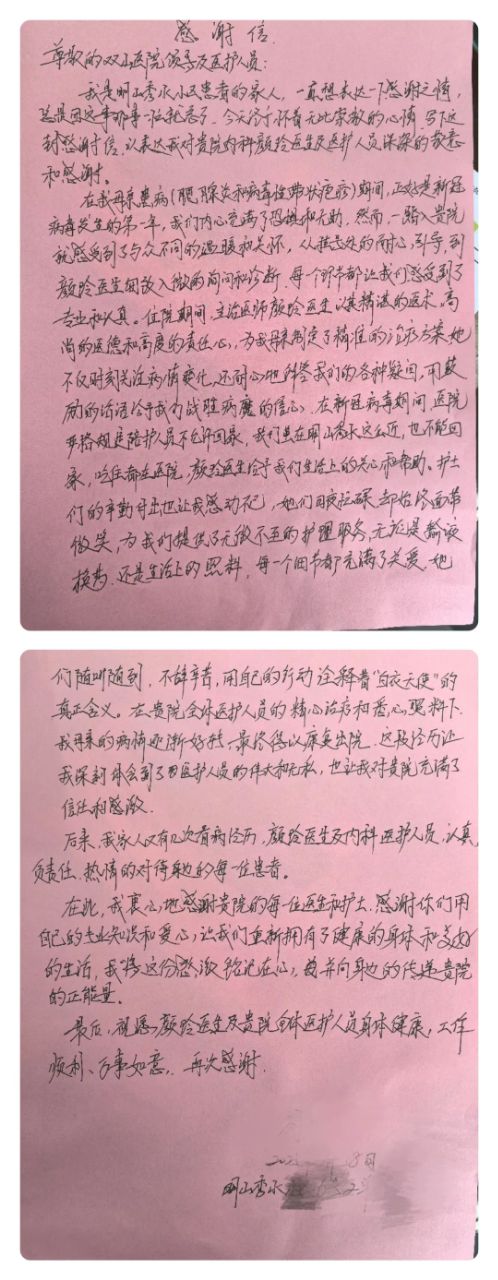 感谢信
尊敬的双山医院领导及医护人员:
我是明山秀水小区患者的家人,一直想表达一下感谢之情,
总是因这事那事一拉就忘了。今天终于怀着无比崇敬的心情,写下这
封感谢信,以表达我对贵院内科颜玲医生及医护人员深深的敬意
和感谢。
在我母亲患病(腮腺炎和病毒性带状疱疹)期间,正好是新冠
病毒发生的第一年,我们内心充满了恐惧和无助。然而,一踏入贵院
就感受到了与众不同的温暖和关怀,从挂号处的耐心引导,到
颜玲医生细致入微的询问和诊断,每个环节都让我们感受到了
专业和认真。住院期间,主治医师颜玲医生以其精湛的医术,高
尚的医德和高度的责任心,为我母亲制定了精准的治疗方案,她
不仅时刻关注病情变化,还耐心地解答我们的各种疑问,用鼓
励的话语给予我们战胜病魔的信心。在新冠病毒期间,医院
严格规定陪护人员不允许回家,我们虽在明山秀水这么近,也不能回
家,吃住都在医院,颜玲医生给予我们生活上的关心和帮助。护士
们的辛勤付出也让我感动不已,她们日夜忙碌,却始终面带
微笑,为我们提供了无微不至的护理服务,无论是输液
换药,还是生活上的照料,每一个细节都充满了关爱,她
们随叫随到,不辞辛苦,用自己的行动诠释着“白衣天使”的
真正含义。在贵院全体医护人员的精心治疗和悉心照料下
我母亲的病情逐渐好转,最终得以康复出院。这段经历让
我深刻体会到了医护人员的伟大和无私,也让我对贵院充满了
信任和感激。
后来,我家人又有几次看病经历,颜玲医生及内科医护人员,认真
负责任、热情的对待身边的每一位患者。
在此,我衷心地感谢贵院的每一位医生和护士,感谢你们用
自己的专业知识和爱心,让我们重新拥有了健康的身体和美好
的生活,我将这份感激铭记在心,并向身边的传递贵院
的正能量。
最后,祝愿颜玲医生及贵院全体医护人员身体健康,工作
顺利、万事如意,再次感谢.
日
明山秀水